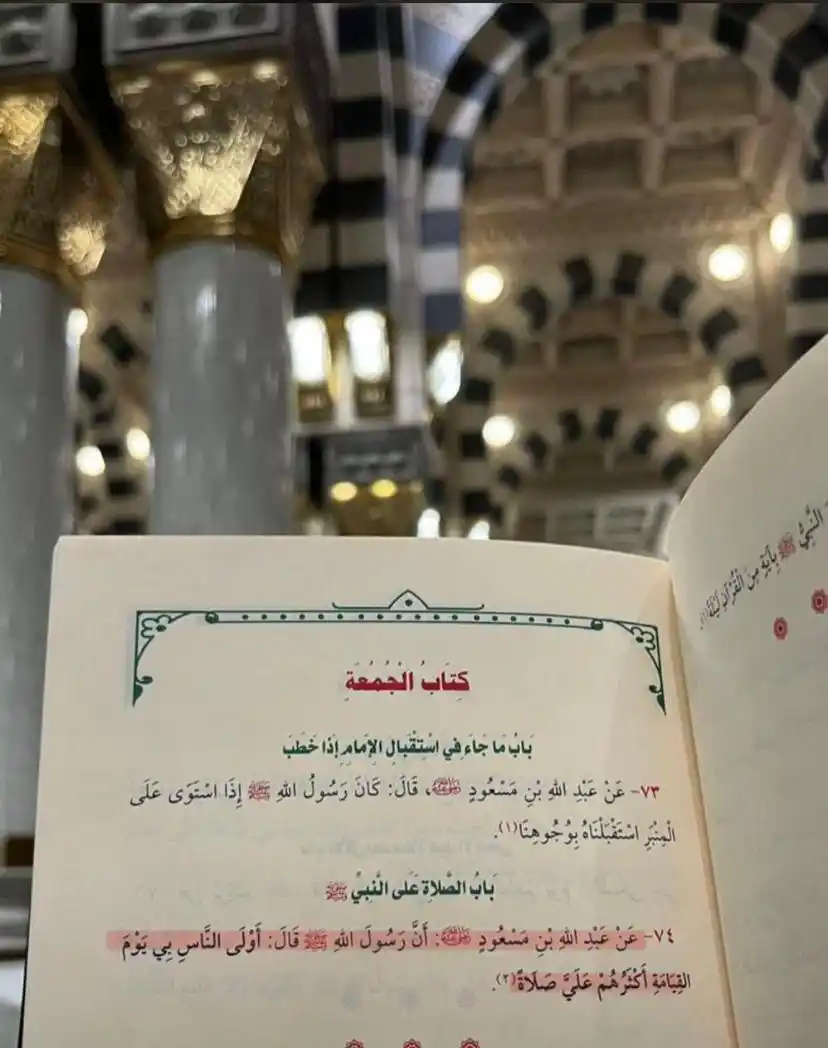 كِتَابُ الْجُمُعَةِ
بَابُ مَا جَاءَ فِي اسْتِقْبَالِ الإِمَامِ إِذَا خَطَبَ
٧٣- عَنْ عَبْدِ اللهِ بْنِ مَسْعُودٍ رضي الله عنه، قَالَ: كَانَ رَسُولُ اللهِ ﷺ إِذَا اسْتَوَى عَلَى
الْمِنْبَرِ اسْتَقْبَلْنَاهُ بِوُجُوهِنَا(١).
بَابُ الصَّلَاةِ عَلَى النَّبِيِّ ﷺ
٧٤- عَنْ عَبْدِ اللهِ بْنِ مَسْعُودٍ رضي الله عنه: أَنَّ رَسُولَ اللهِ ﷺ قَالَ: أَوْلَى النَّاسِ بِي يَوْمَ
القِيَامَةِ أَكْثَرُهُمْ عَلَيَّ صَلَاةً(٢).
النَّبِيُّ ﷺ بِآيَةٍ مِنَ الْقُرْآنِ لَيْلَةً(١).